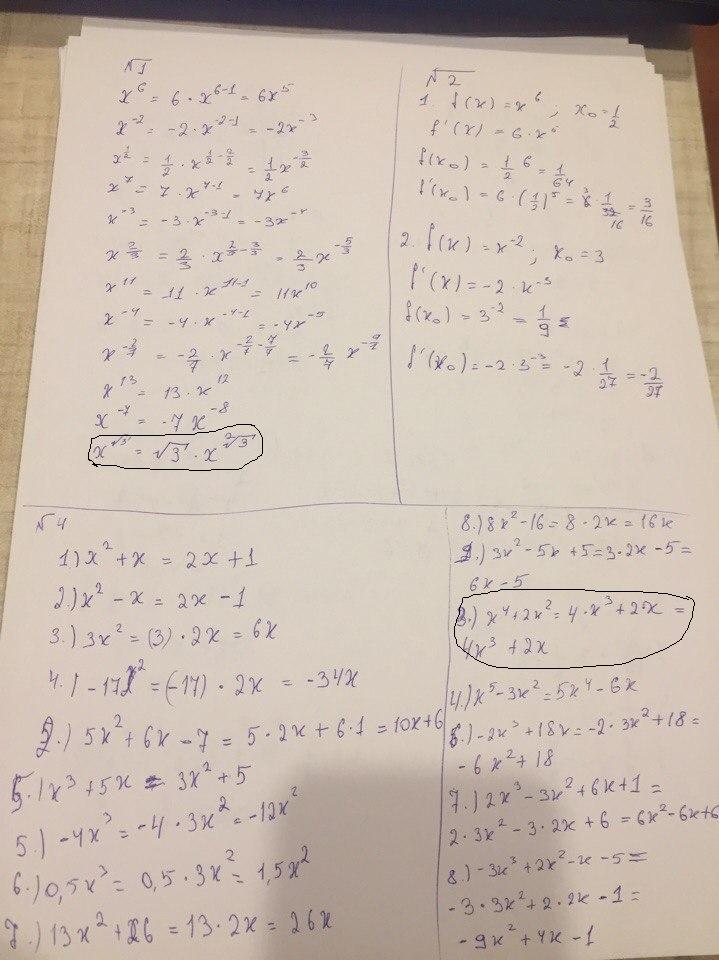 √1
x^6 = 6 · x^{6-1} = 6x^5
x^{-2} = -2 · x^{-2-1} = -2x^{-3}
x^{1/2} = 1/2 · x^{1/2-2/2} = 1/2 x^{-3/2}
x^7 = 7 · x^{7-1} = 7x^6
x^{-3} = -3 · x^{-3-1} = -3x^{-4}
x^{2/3} = 2/3 · x^{2/3-3/3} = 2/3 x^{-5/3}
x^{11} = 11 · x^{11-1} = 11x^{10}
x^{-4} = -4 · x^{-4-1} = -4x^{-5}
x^{-2/7} = -2/7 · x^{-2/7-7/7} = -2/7 x^{-9/7}
x^{13} = 13 · x^{12}
x^{-7} = -7x^{-8}
x^{√3} = √3 · x^{2√3}
√2
1. f(x) = x^6 ; x_0 = 1/2
f'(x) = 6 · x^6
f(x_0) = 1/2 6 = 1/64
f'(x_0) = 6 · (1/2)^5 = 6 3 · 1/32 16 = 3/16
2. f(x) = x^{-2} ; x_0 = 3
f'(x) = -2 · x^{-3}
f(x_0) = 3^{-2} = 1/9
f'(x_0) = -2 · 3^{-3} = -2 · 1/27 = -2/27
√4
1) x^2 + x = 2x + 1
2.) x^2 - x = 2x - 1
3.) 3x^2 = (3) · 2x = 6x
4.) -17x^2 = (-17) · 2x = -34x
2.) 5x^2 + 6x - 7 = 5 · 2x + 6 · 1 = 10x + 6
5.) x^3 + 5x = 3x^2 + 5
5.) -4x^3 = -4 · 3x^2 = -12x^2
6.) 0,5x^3 = 0,5 · 3x^2 = 1,5x^2
7.) 13x^2 + 26 = 13 · 2x = 26x
8.) 8x^2 - 16 = 8 · 2x = 16x
1.) 3x^2 - 5x + 5 = 3 · 2x - 5 =
6x - 5
3.) x^4 + 2x^2 = 4 · x^3 + 2 · x =
4x^3 + 2x
4.) x^5 - 3x^2 = 5x^4 - 6x
6.) -2x^3 + 18x = -2 · 3x^2 + 18 =
-6x^2 + 18
7.) 2x^3 - 3x^2 + 6x + 1 =
2 · 3x^2 - 3 · 2x + 6 = 6x^2 - 6x + 6
8.) -3x^3 + 2x^2 - x - 5 =
-3 · 3x^2 + 2 · 2x - 1 =
-9x^2 + 4x - 1